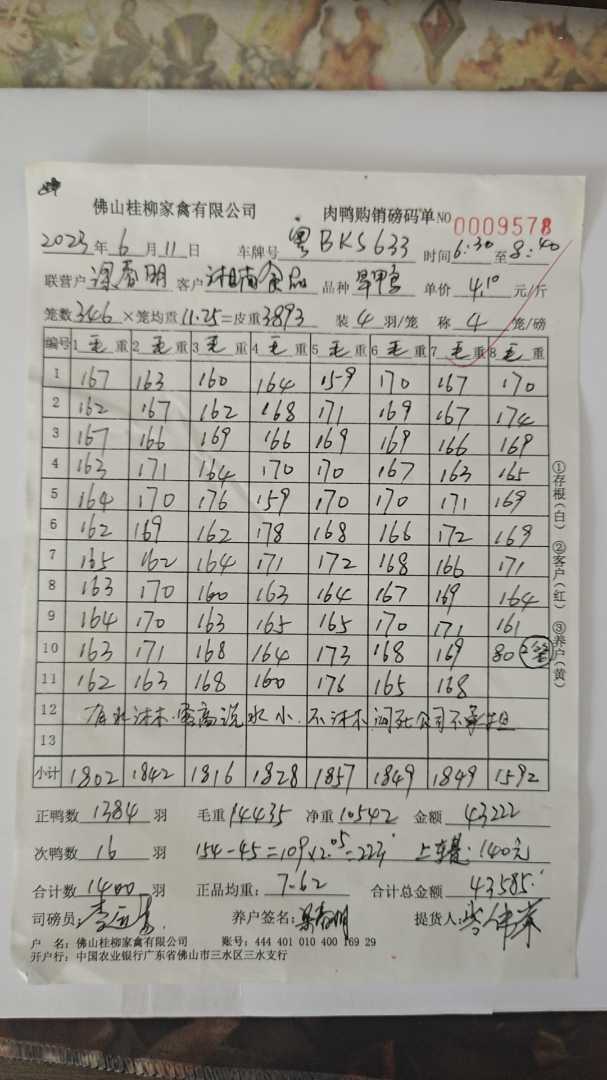 佛山桂柳家禽有限公司 肉鸭购销磅码单 NO 0009578
2023年6月11日 车牌号 粤BKS633 时间 6:30 至 8:40
联营户 梁春明 客户 湘南食品 品种 旱鸭 单价 4.10 元/斤
笼数 346 ×笼均重 11.25=皮重 3893 装 4 羽/笼 称 4 笼/磅
编号 1 毛重 2 毛重 3 毛重 4 毛重 5 毛重 6 毛重 7 毛重 8 毛重
1 167 163 160 164 159 170 167 170
2 162 167 162 168 171 169 167 174
3 167 166 169 166 169 169 166 169
4 163 171 164 170 170 167 163 165
5 164 170 176 159 170 170 171 169
6 162 169 162 178 168 166 172 169
7 165 162 164 171 172 168 166 171
8 163 170 160 163 164 167 169 164
9 164 170 163 165 165 170 171 161
10 163 171 168 164 173 168 169 80 2笼
11 162 163 168 160 176 165 168
12 水沐 说水小.不沐 死公司不承担
13
小计 1802 1842 1816 1828 1857 1849 1849 1592
正鸭数 1384 羽 毛重 14435 净重 10542 金额 43222
次鸭数 16 羽 154-45=109×2.05=223 上车费:140元
合计数 1400 羽 正品均重: 7.62 合计总金额 43585.
司磅员: 养户签名: 梁春明 提货人:
户 名: 佛山桂柳家禽有限公司 账号: 444 401 010 400 169 29
开户行: 中国农业银行广东省佛山市三水区三水支行
①存根(白) ②客户(红) ③养户(黄)